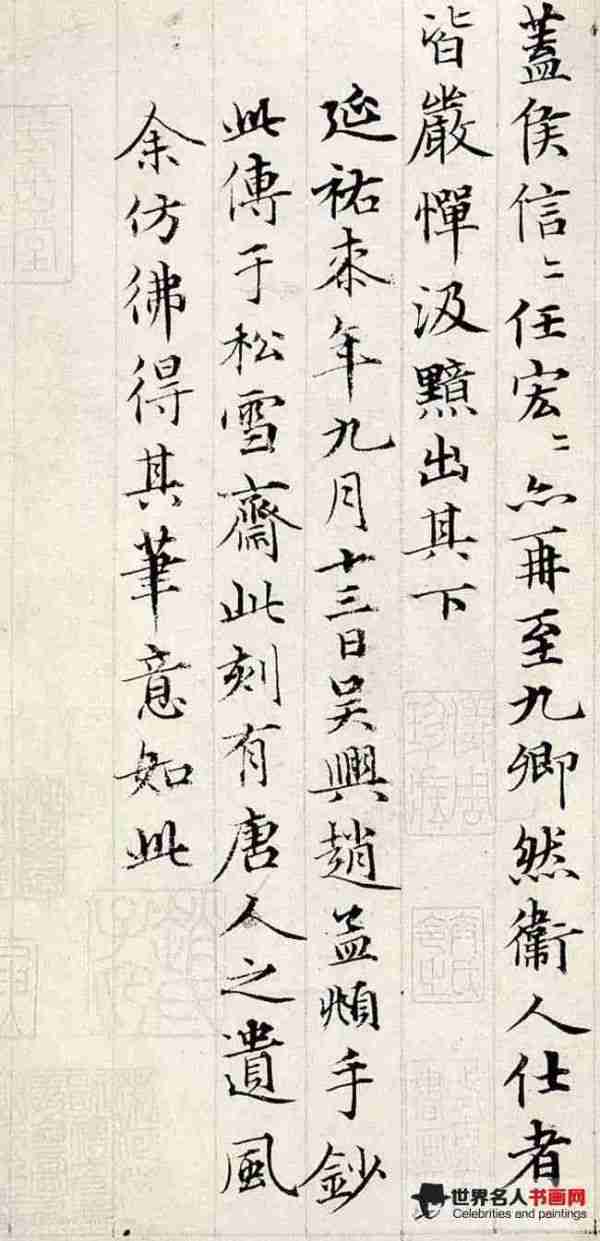 蓋侯信〻任宏〻亦再至九卿然衞人仕者
皆嚴憚汲黯出其下
延祐柒年九月十三日吴興趙孟頫手鈔
此傳于松雪齋此刻有唐人之遺風
余仿彿得其筆意如此
世界名人书画网
Celebrities and paintings